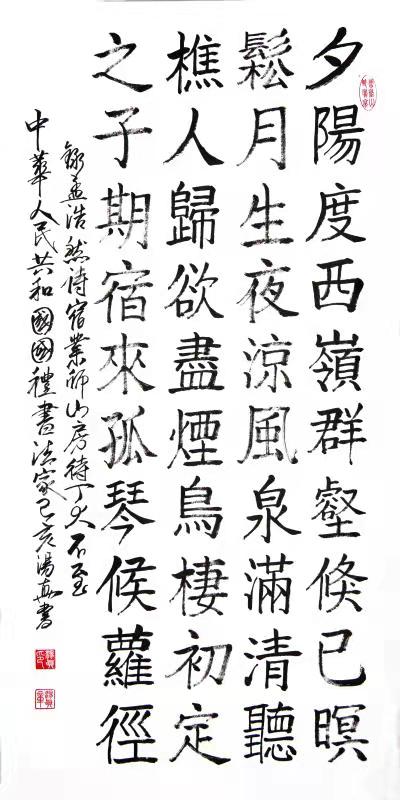 夕陽度西嶺群壑倏已暝
鬆月生夜涼風泉滿清聽
樵人歸欲盡煙鳥棲初定
之子期宿來孤琴候蘿徑
錄孟浩然詩宿業師山房待丁大不至
中華人民共和國國禮書法家己亥湯書